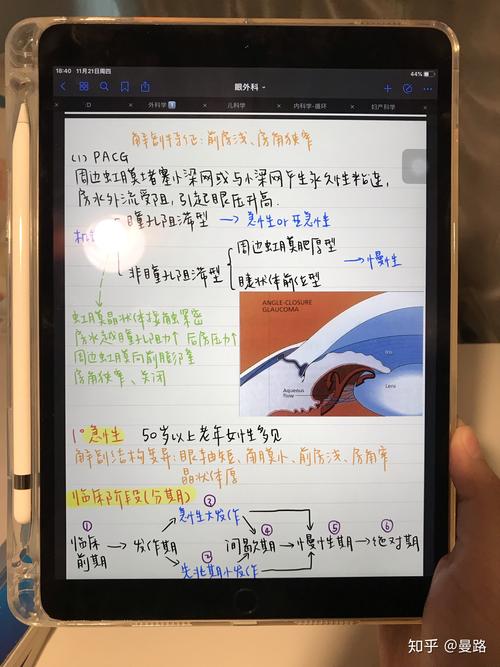 18:40 11月21日周四
44%
眼外科
:D
外科学
儿科学
内科学-循环
妇产科学
解剖特征:前房浅、房角狭窄
(1) PACG
周边虹膜堵塞小梁网或与小梁网产生永久性粘连,
房水外流受阻,引起眼压升高.
瞳孔阻滞型 → 急性or亚急性
机
非瞳孔阻滞型
周边虹膜肥厚型
睫状体前位型
→慢性
虹膜晶状体接触紧密
房水越瞳孔阻力↑ 后房压力↑
周边虹膜向前膨隆
房角狭窄、关闭
ANGLE-CLOSURE
GLAUCOMA
Iris
Lens
Aqueous
flow
1° 急性 50岁以上老年女性多见
解剖结构变异:眼轴短、角膜小、前房浅、房角窄
晶状体厚
临床阶段(分期)
③
急性大发作
① ④ ⑤ ⑥
临床前期 → 发作期 间歇期 → 慢性期 → 绝对期
②
先兆期小发作
知乎 @曼路